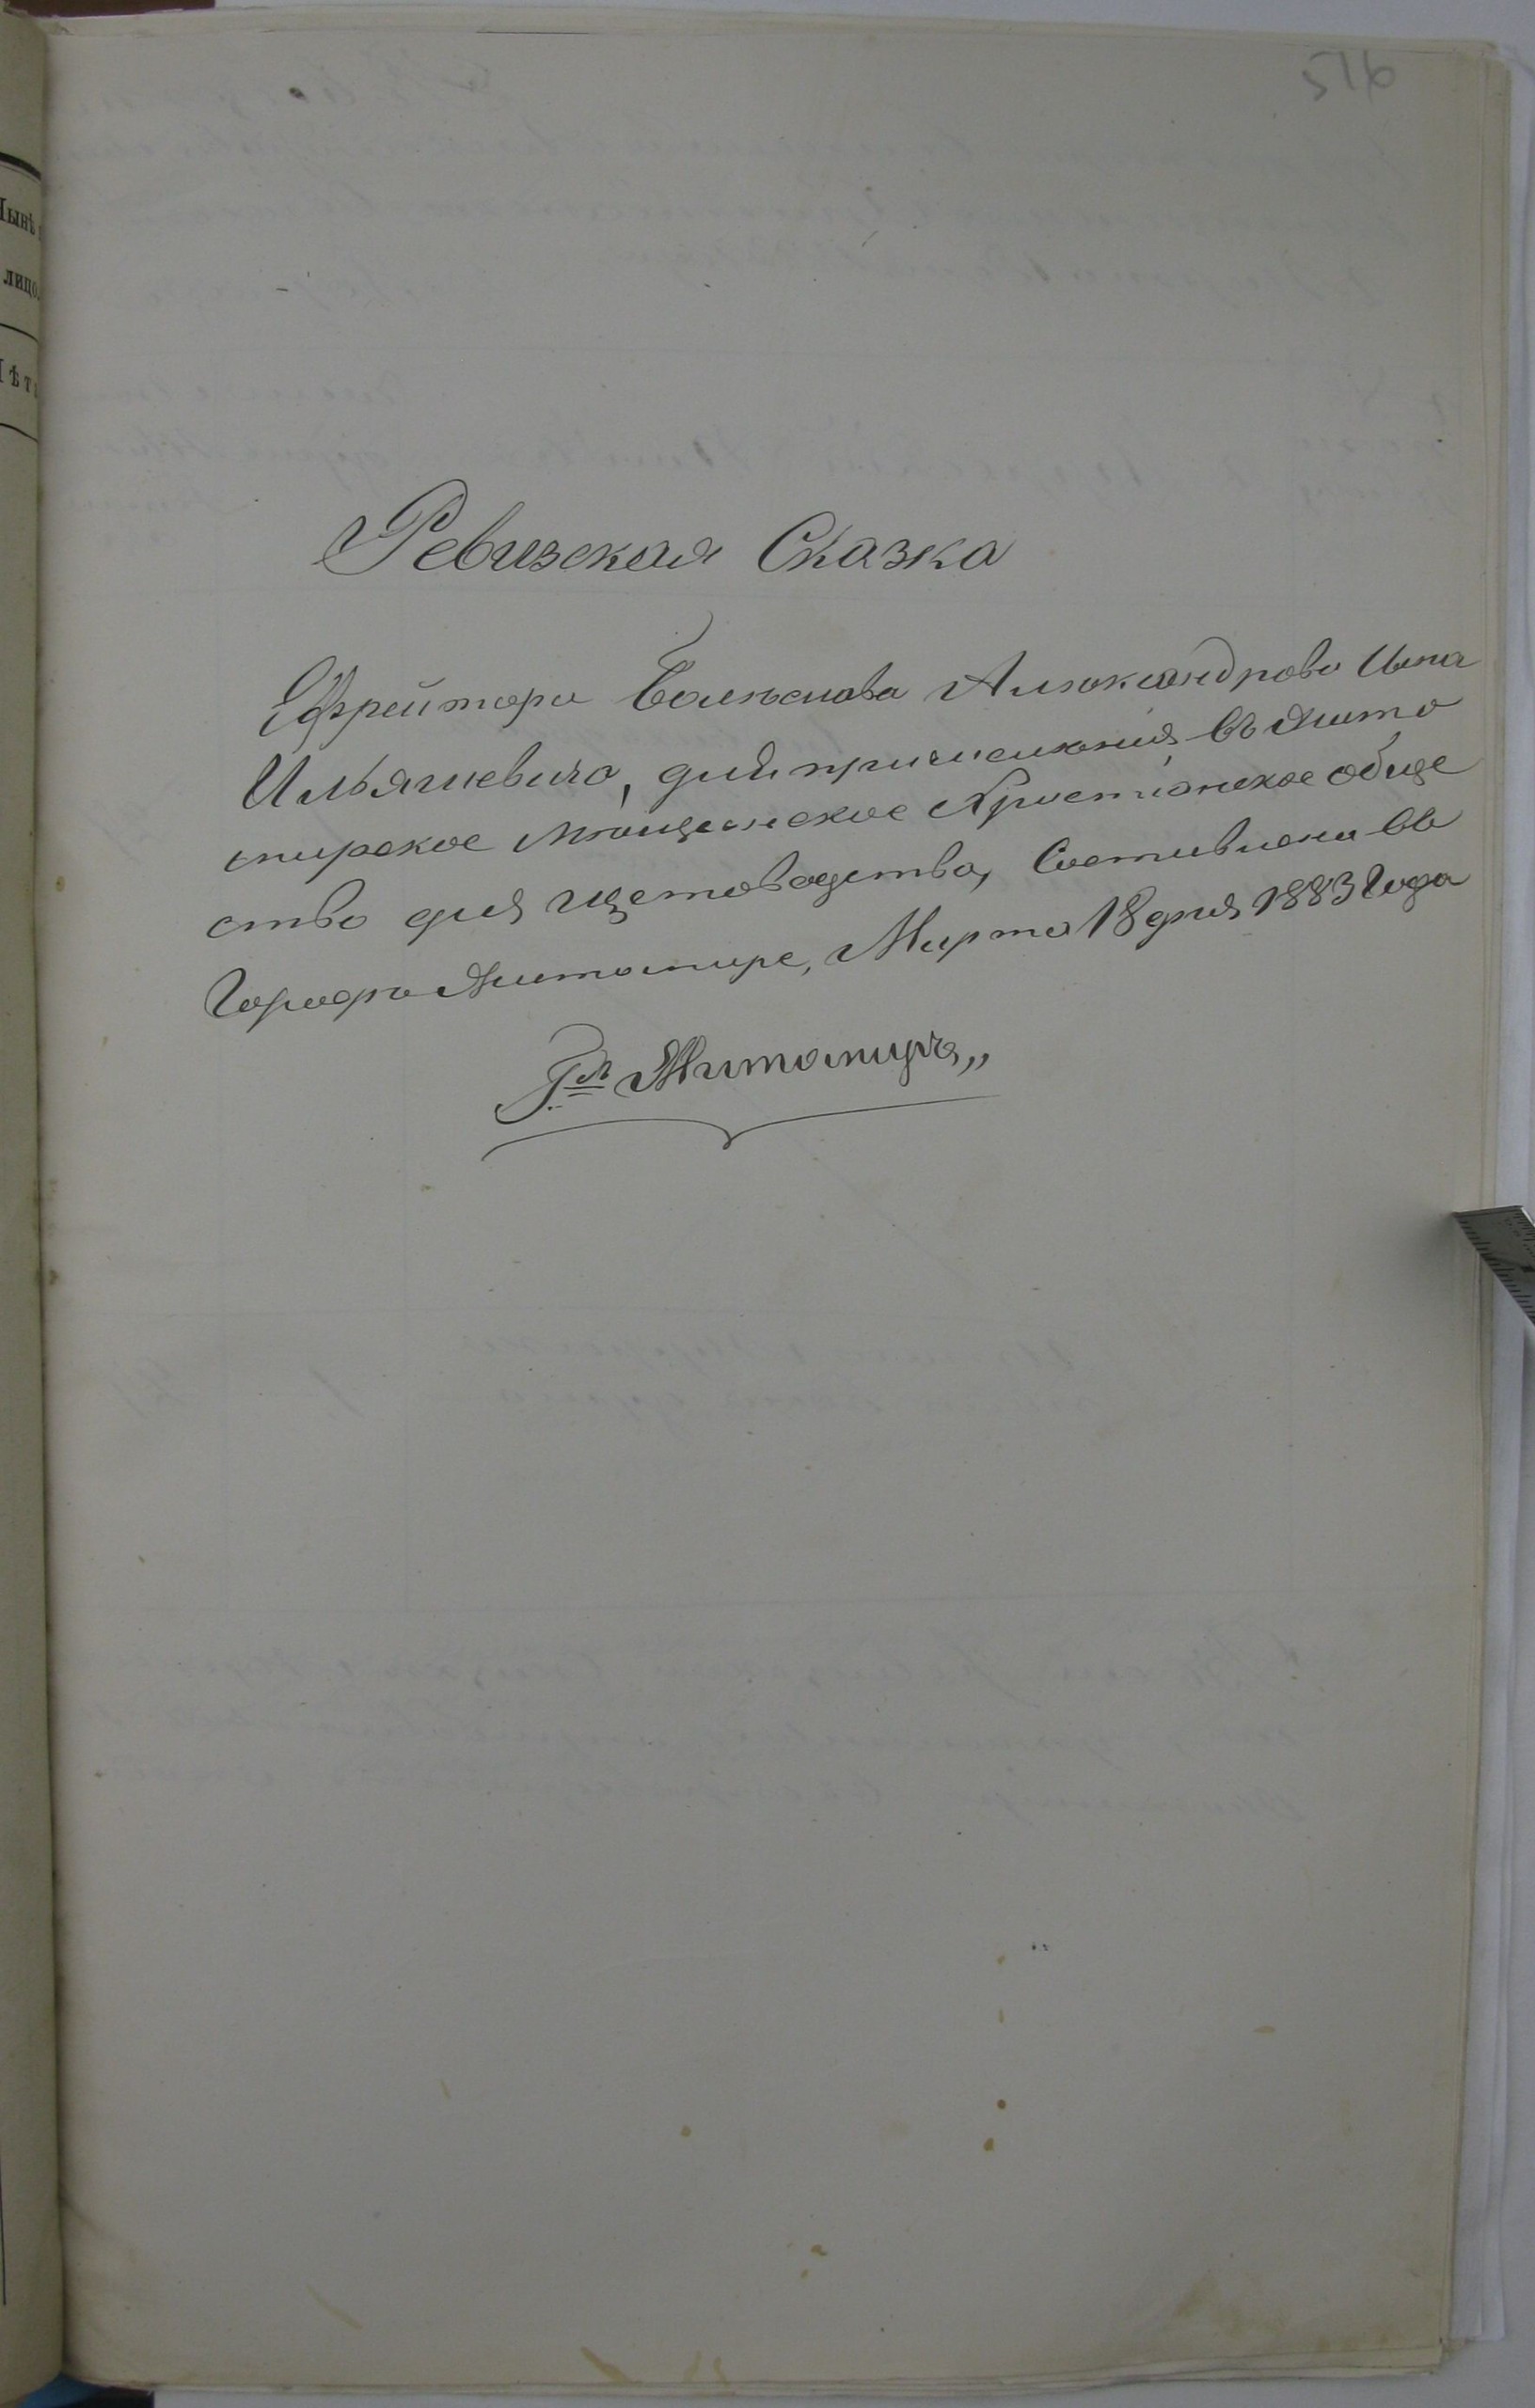 516
Нынѣ
лицо
Лѣта
Ревизская Сказка
Ефрейтора Болеслава Александрова Сына
Ильяшевича, для причисленія въ Жито
мирское мѣщанское Христіанское обще
ство для щетоводства, Составлена въ
Городѣ Житомирѣ, Марта 18 дня 1883 Года
Г. Житомиръ,,